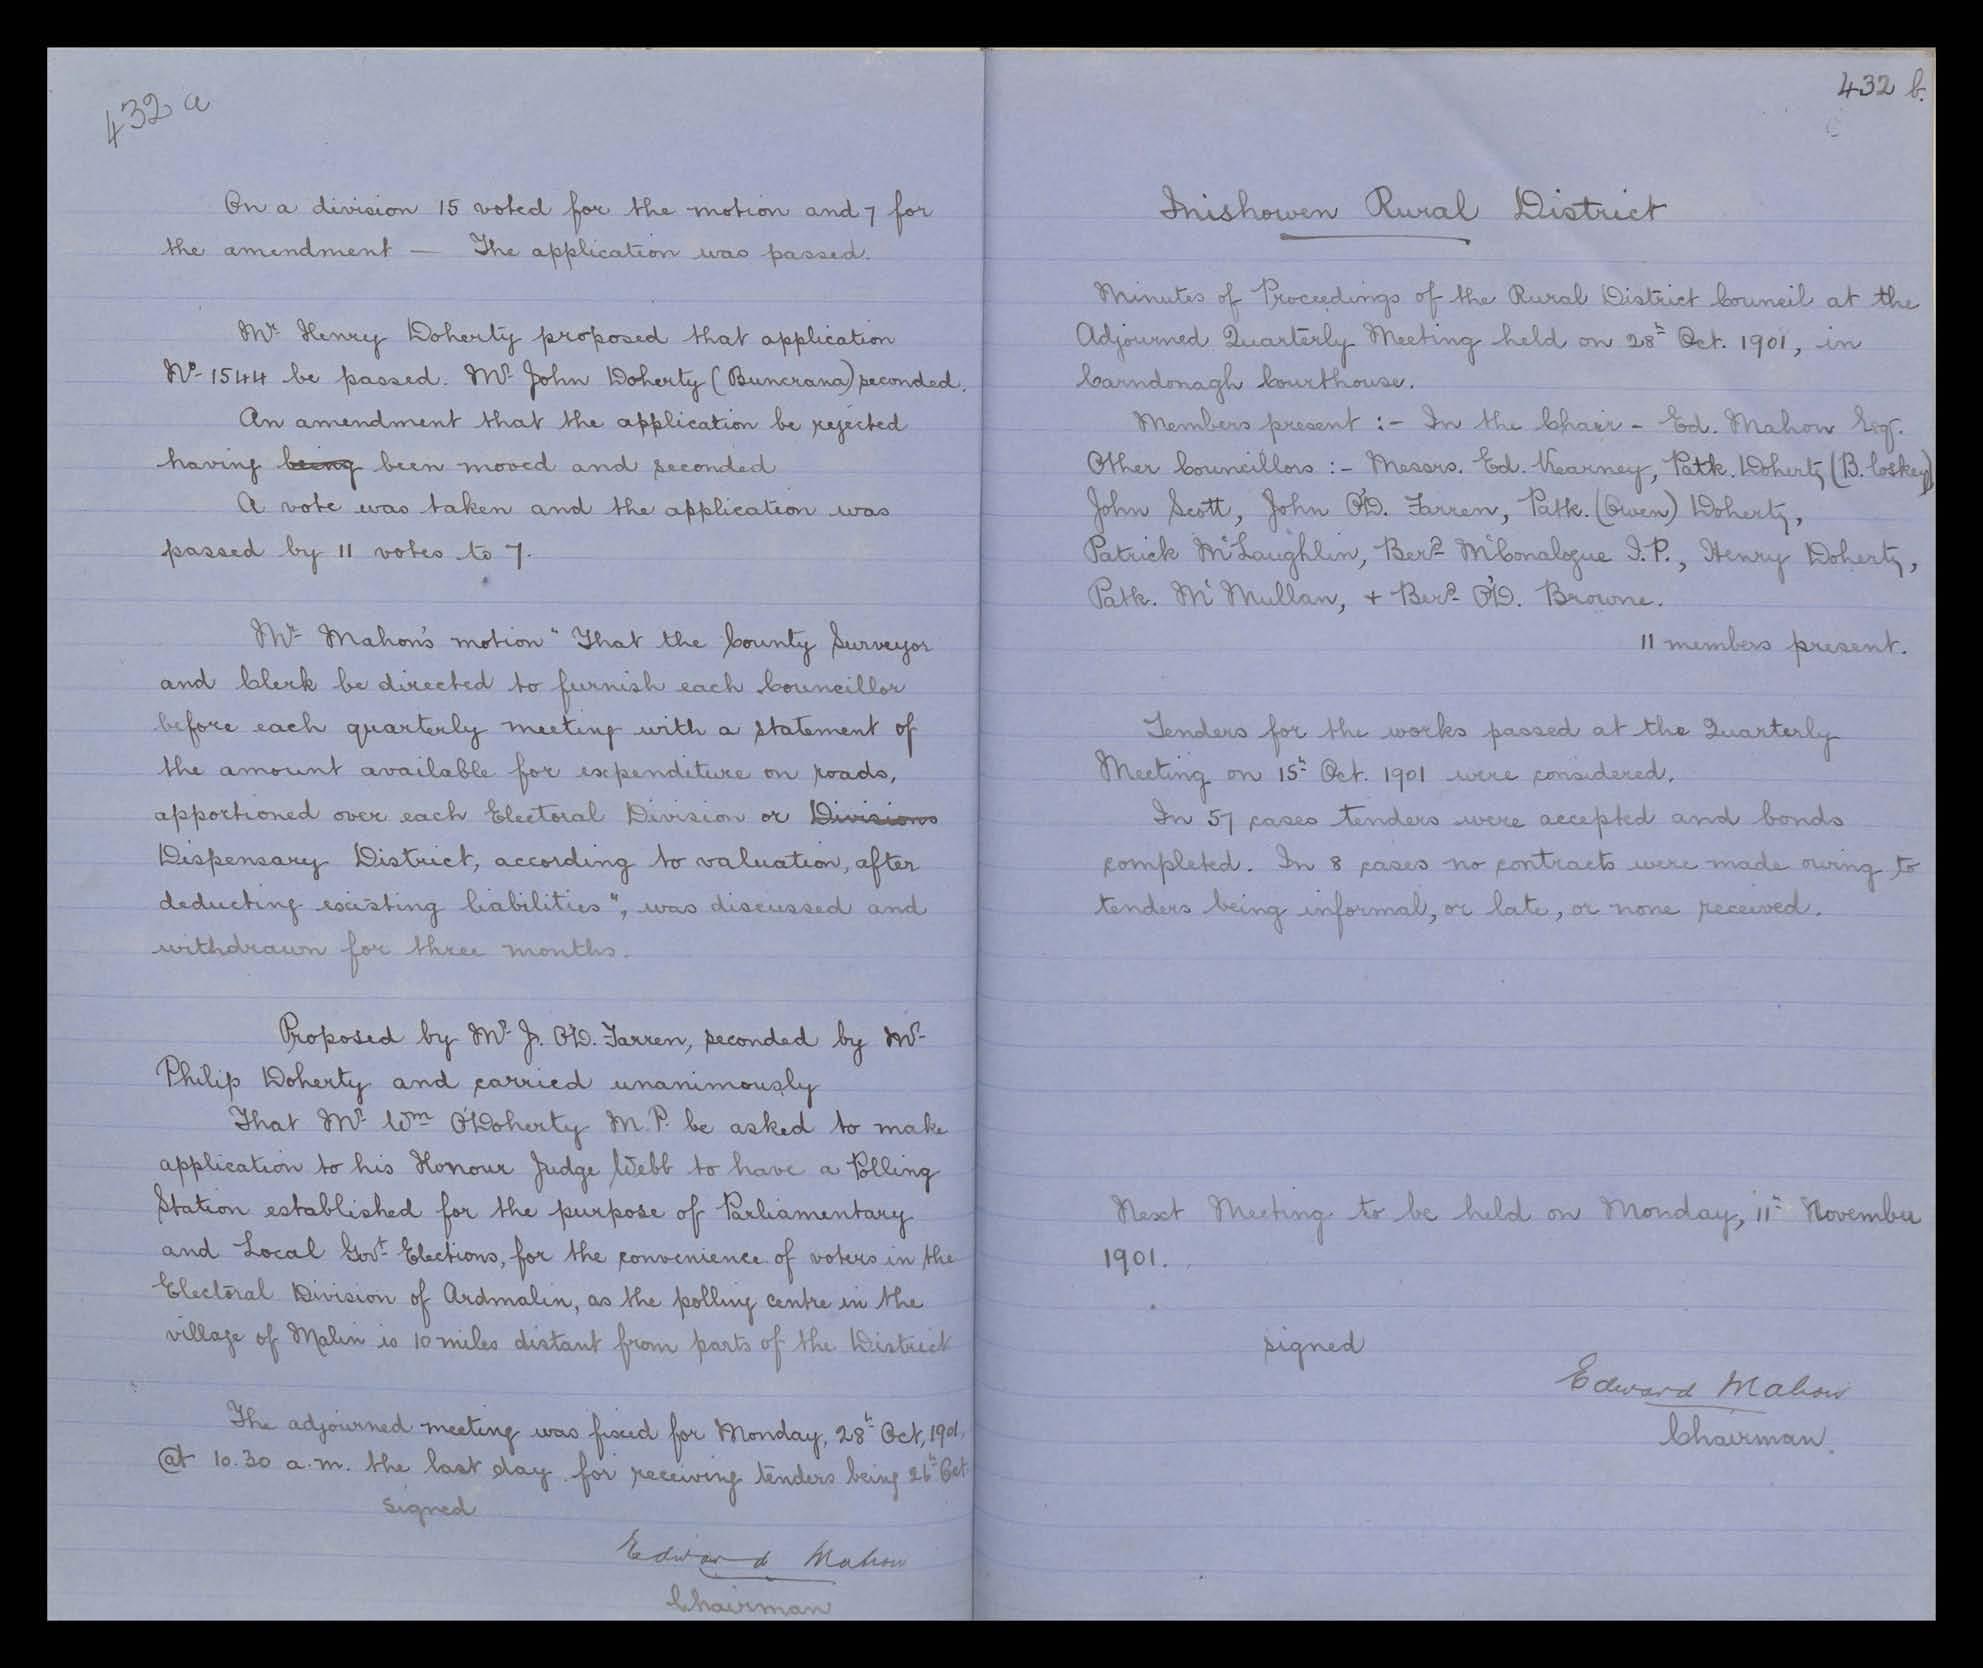 432 a
On a division 15 voted for the motion and 7 for
the amendment — The application was passed.
Mr Henry Doherty proposed that application
No 1544 be passed. Mr John Doherty (Buncrana) seconded.
An amendment that the application be rejected
having being been moved and seconded
A vote was taken and the application was
passed by 11 votes to 7.
Mr Mahon's motion "That the County Surveyor
and Clerk be directed to furnish each Councillor
before each quarterly meeting with a statement of
the amount available for expenditure on roads,
apportioned over each Electoral Division or Divisions
Dispensary District, according to valuation, after
deducting existing liabilities", was discussed and
withdrawn for three months.
Proposed by Mr J. O'D. Farren, seconded by Mr
Philip Doherty and carried unanimously
That Mr Wm O'Doherty M.P. be asked to make
application to his Honour Judge Webb to have a Polling
Station established for the purpose of Parliamentary
and Local Govt Elections, for the convenience of voters in the
Electoral Division of Ardmalin, as the polling centre in the
village of Malin is 10 miles distant from parts of the District
The adjourned meeting was fixed for Monday, 28th Oct, 1901,
@t 10.30 a.m. the last day for receiving tenders being 26th Oct.
signed
Edward Mahon
Chairman
432 b.
Inishowen Rural District
Minutes of Proceedings of the Rural District Council at the
Adjourned Quarterly Meeting held on 28th Oct. 1901, in
Carndonagh Courthouse.
Members present :- In the Chair - Ed. Mahon Esq.
Other Councillors :- Messrs. Ed. Kearney, Patk. Doherty (B. Coskey)
John Scott, John O'D. Farren, Patk. (Owen) Doherty,
Patrick McLaughlin, Berd McConalogue J.P., Henry Doherty,
Patk. McMullan, + Berd O'D. Browne.
11 members present.
Tenders for the works passed at the Quarterly
Meeting on 15th Oct. 1901 were considered.
In 57 cases tenders were accepted and bonds
completed. In 8 cases no contracts were made owing to
tenders being informal, or late, or none received.
Next Meeting to be held on Monday, 11th November
1901.
signed
Edward Mahon
Chairman.